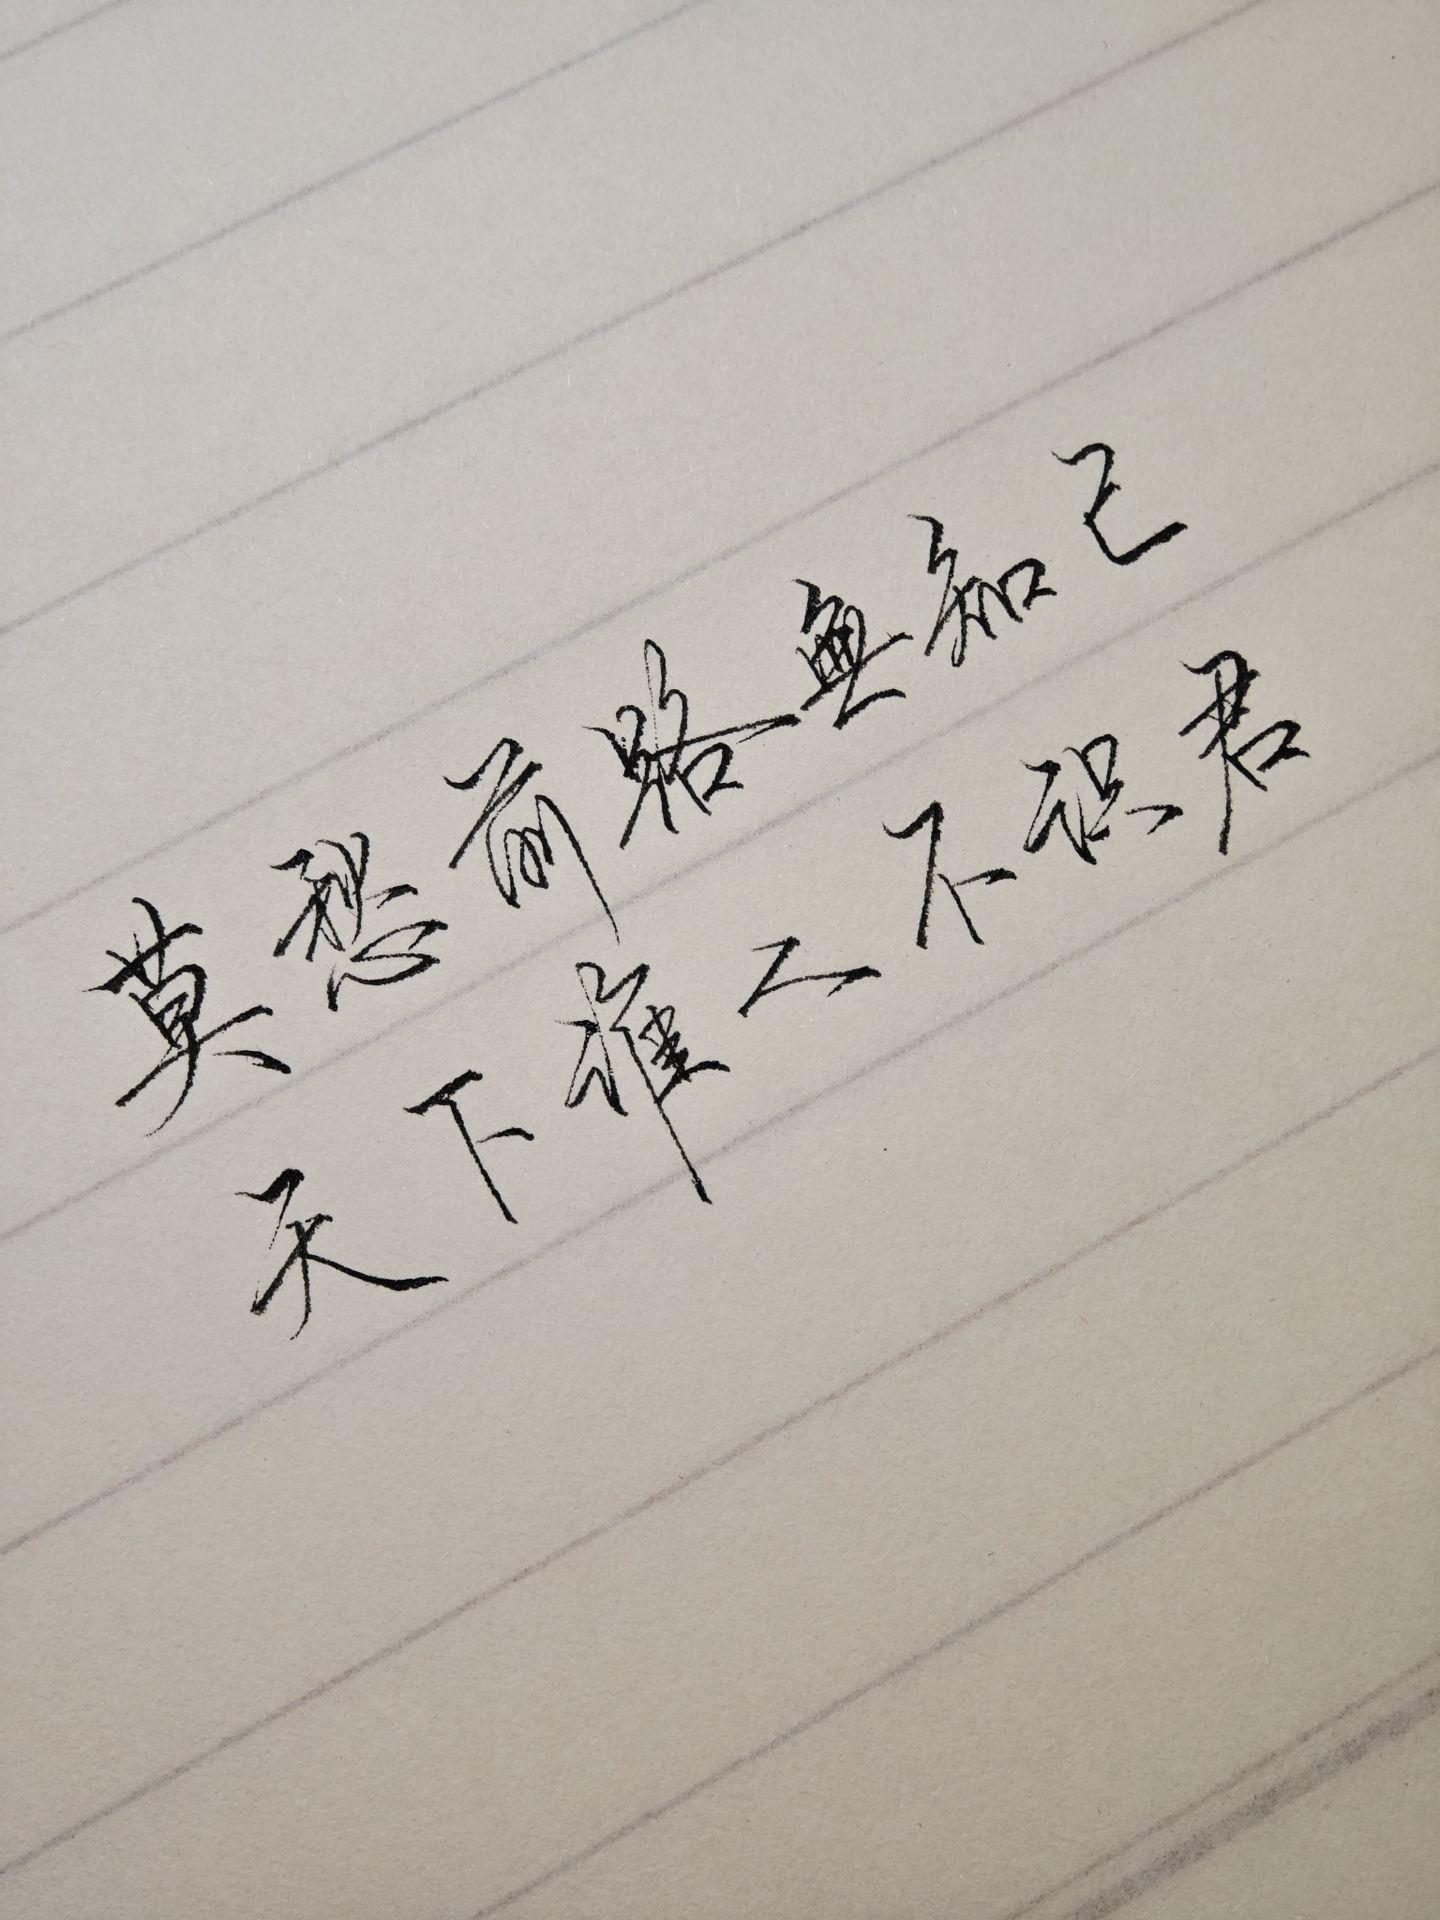 莫愁前路無知己
天下誰人不识君